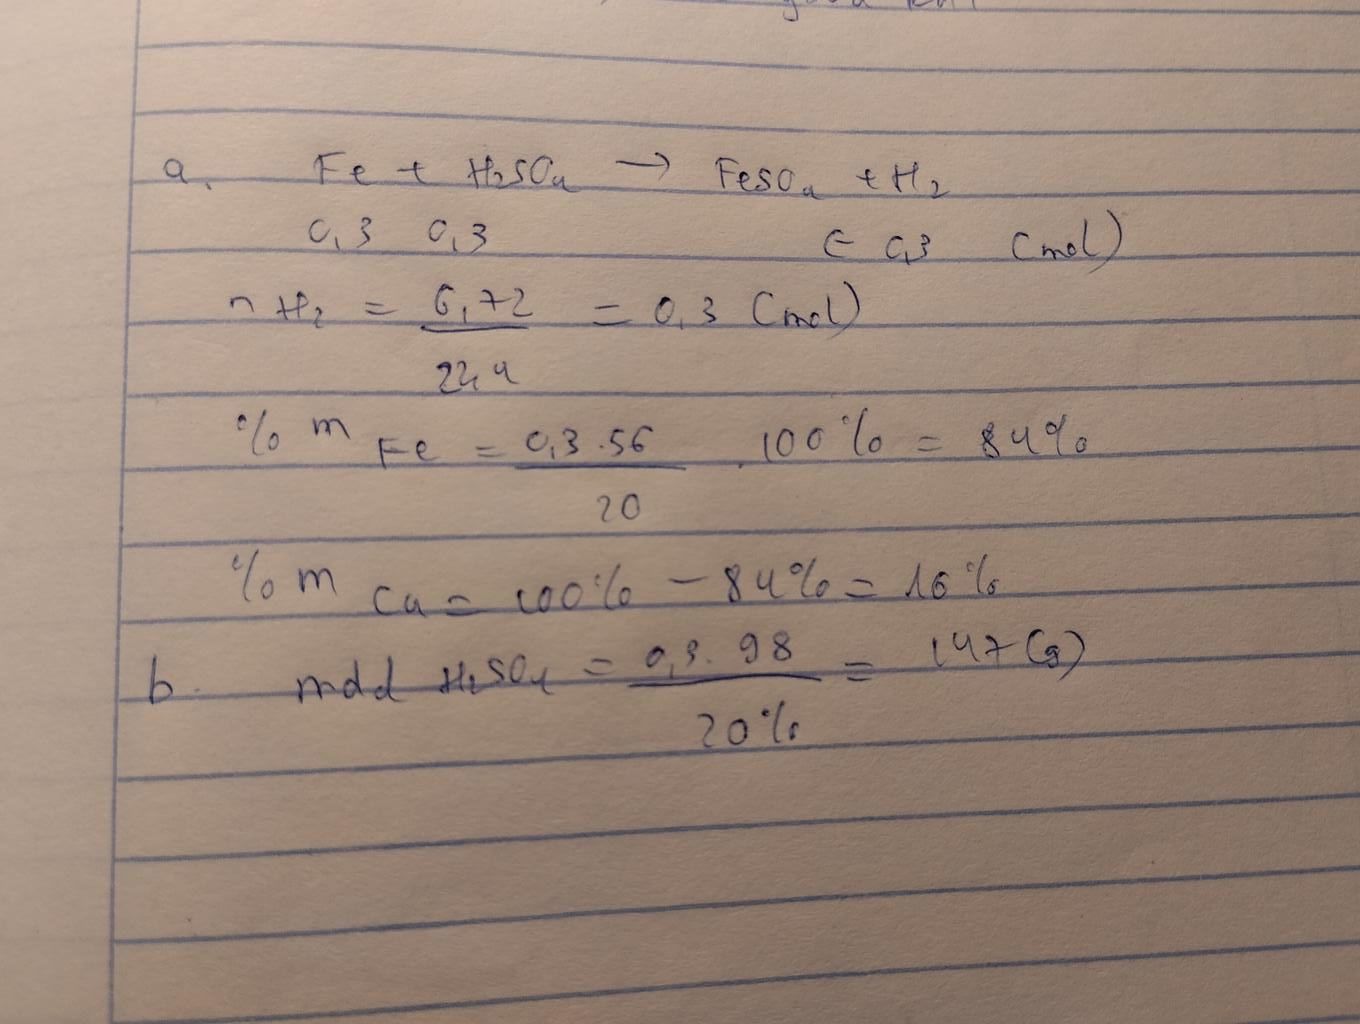 a. Fe + H2SO4 → FeSO4 + H2
0,3 0,3 ← 0,3 (mol)
n H2 = 6,72 / 22,4 = 0,3 (mol)
% m Fe = 0,3.56 / 20 . 100% = 84%
% m Cu = 100% - 84% = 16%
b. mdd H2SO4 = 0,3.98 / 20% = 147 (g)